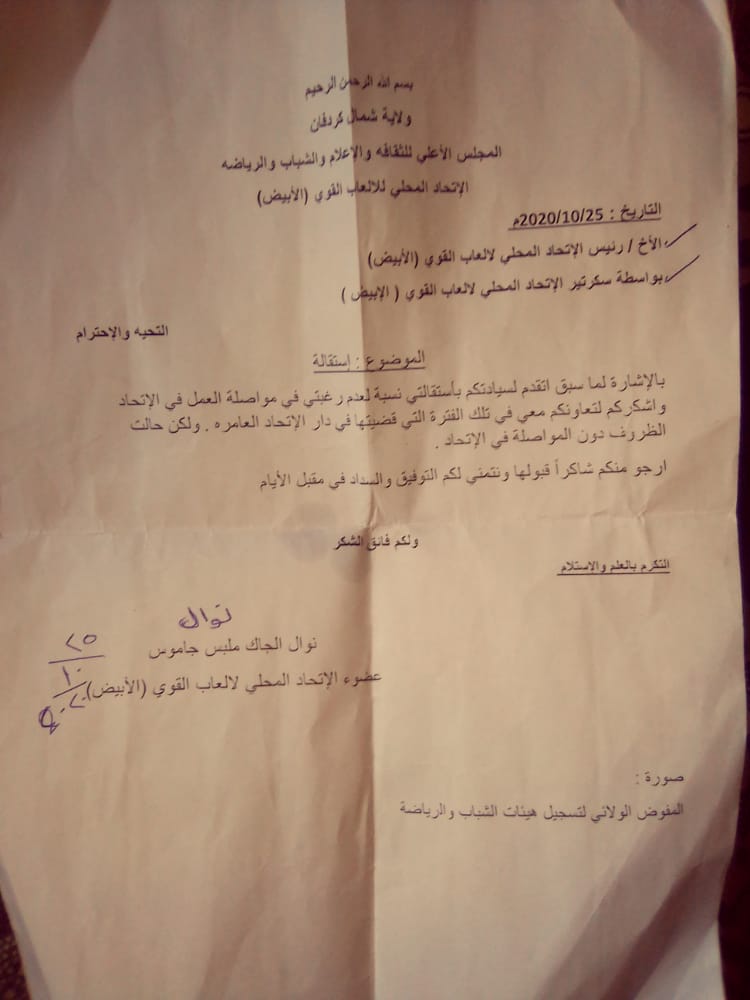 بسم الله الرحمن الرحيم
ولاية شمال كردفان
المجلس الأعلي للثقافه والإعلام والشباب والرياضه
الإتحاد المحلي للالعاب القوي (الأبيض)
التاريخ : 2020/10/25م
الأخ / رئيس الإتحاد المحلي لالعاب القوي (الأبيض)
بواسطة سكرتير الإتحاد المحلي لالعاب القوي ( الإبيض )
التحيه والإحترام
الموضوع : إستقالة
بالإشارة لما سبق اتقدم لسيادتكم بأستقالتي نسبة لعدم رغبتي في مواصلة العمل في الإتحاد
واشكركم لتعاونكم معي في تلك الفترة التي قضيتها في دار الإتحاد العامره . ولكن حالت
الظروف دون المواصلة في الإتحاد .
ارجو منكم شاكراً قبولها ونتمني لكم التوفيق والسداد في مقبل الأيام
ولكم فائق الشكر
التكرم بالعلم والاستلام
نوال
نوال الجاك ملبس جاموس
عضوء الإتحاد المحلي لالعاب القوي (الأبيض)
٢٥
١٠
٢٠٢٠
صورة :
المفوض الولائي لتسجيل هيئات الشباب والرياضة